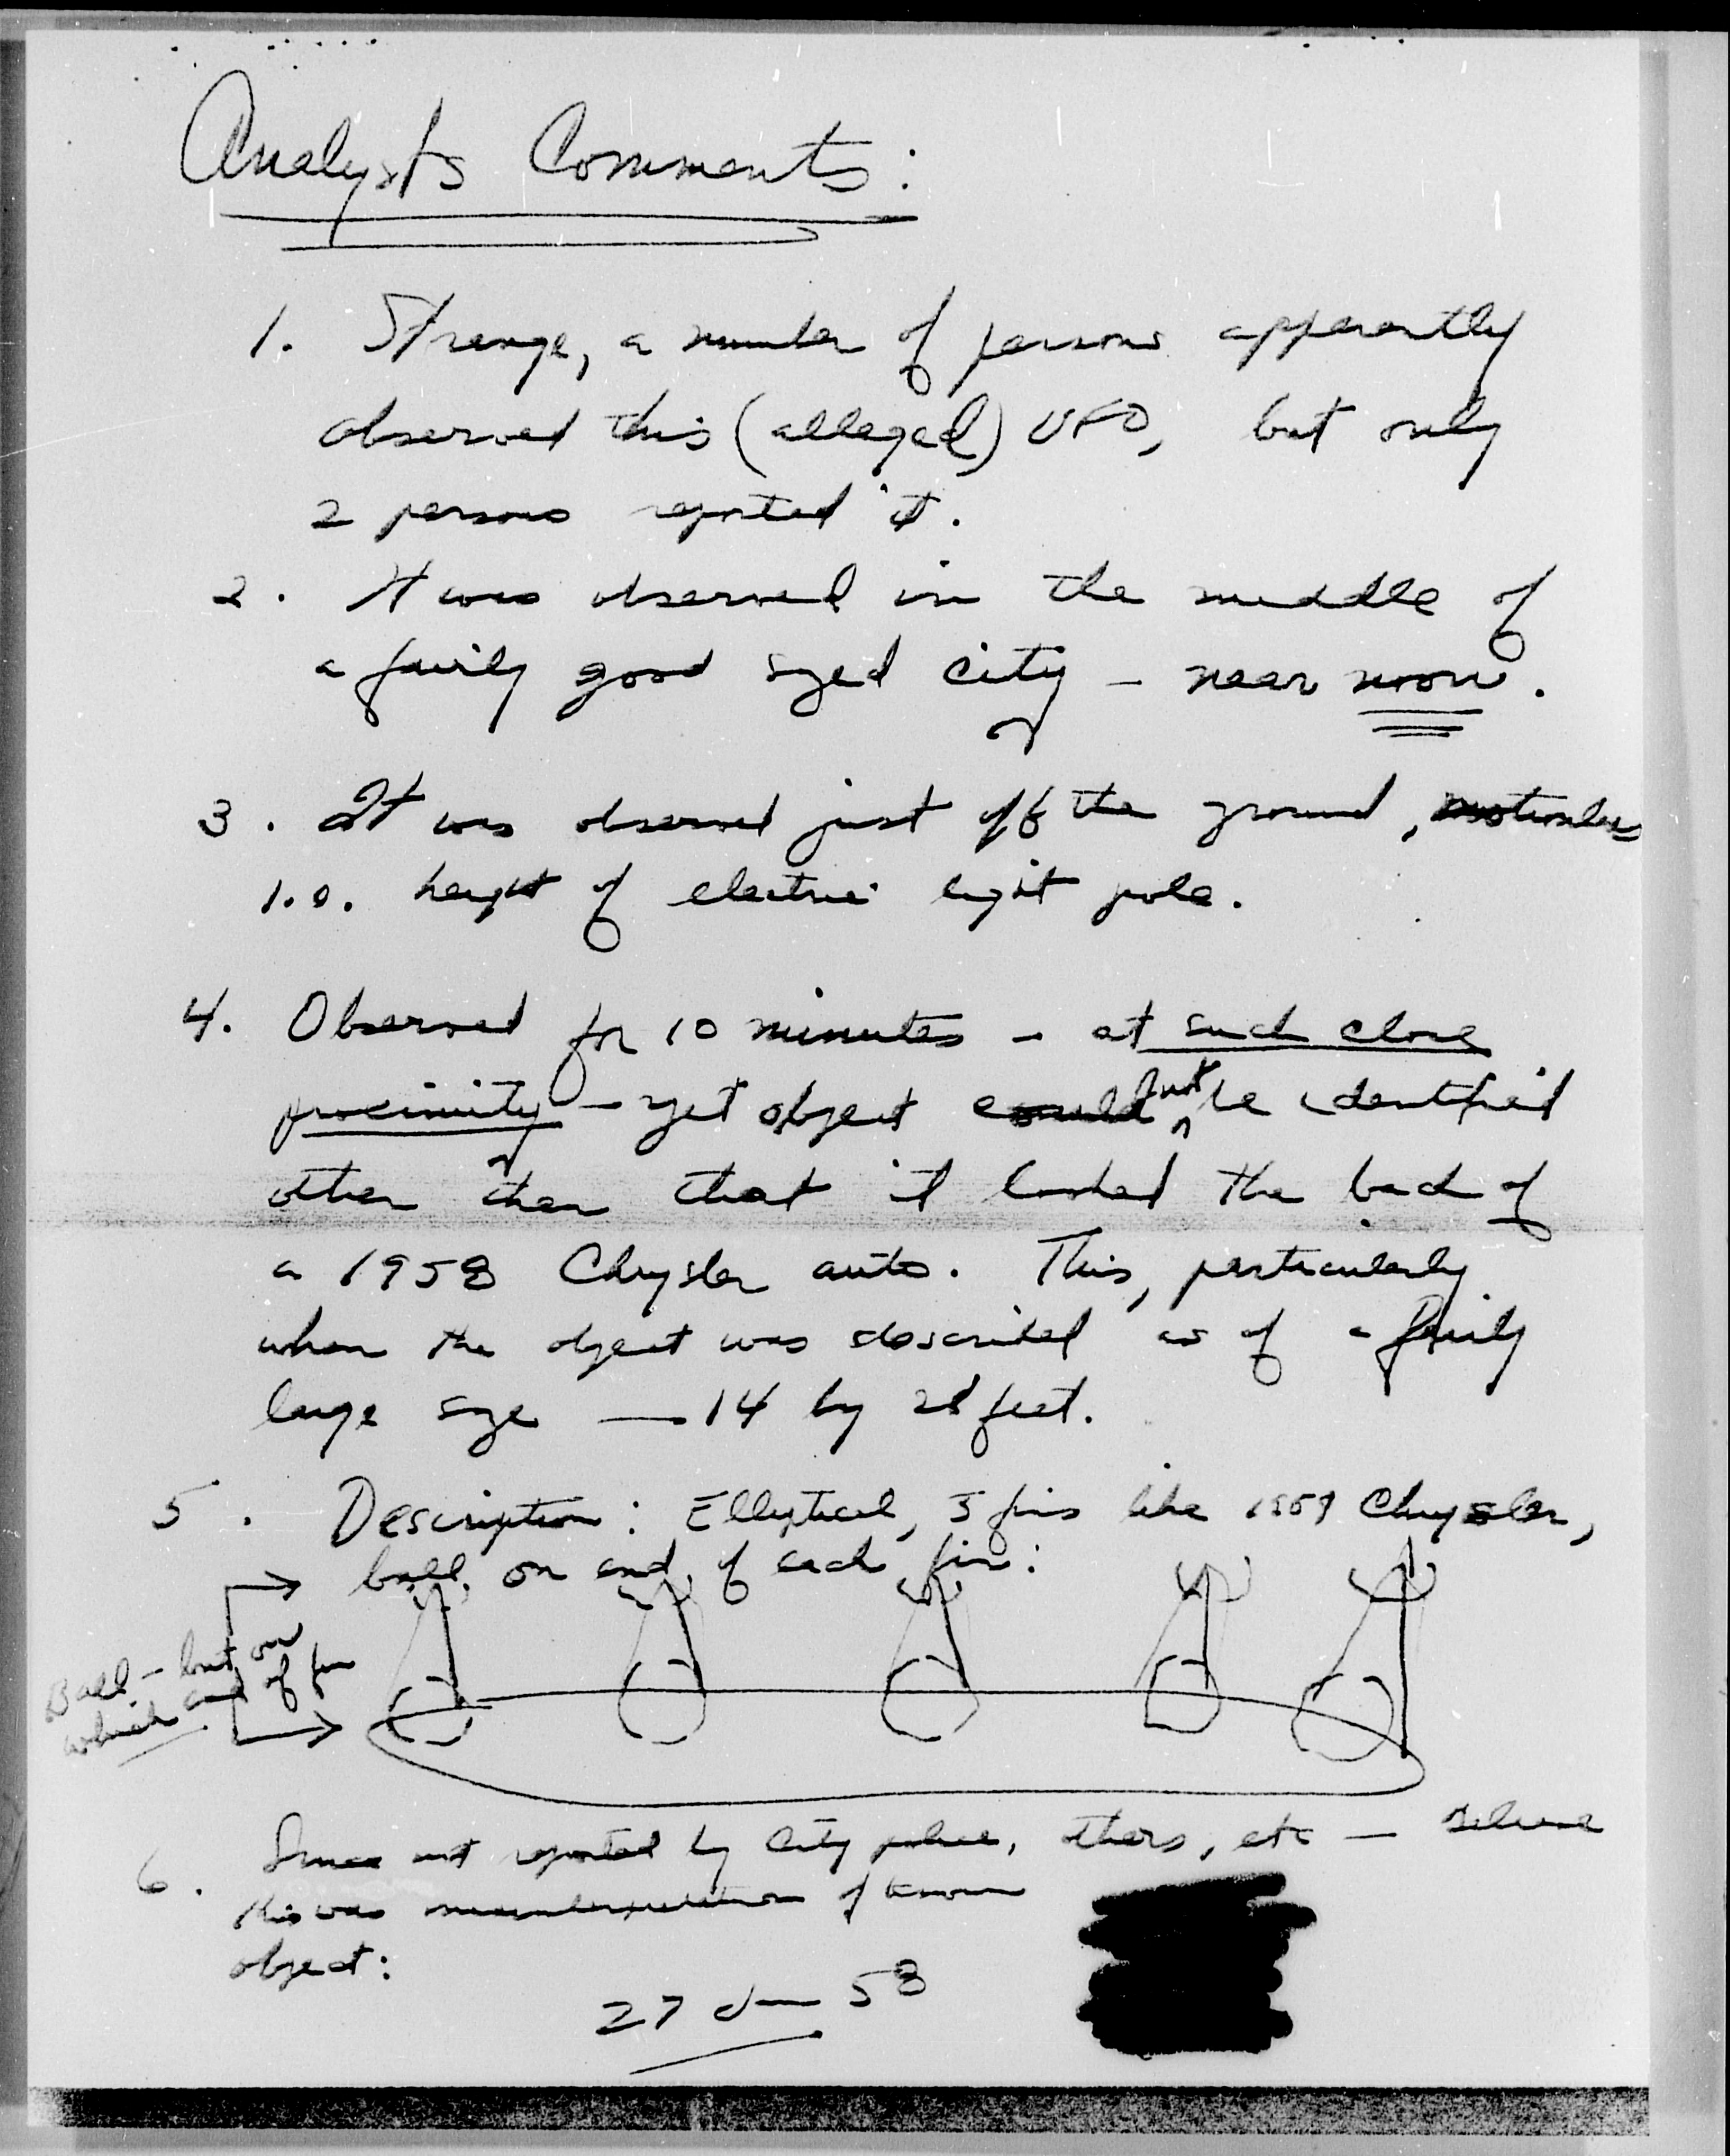 Analysts Comments:
1. Strange, a number of persons apparently
observed this (alleged) UFO, but only
2 persons reported it.
2. It was observed in the middle of
a fairly good sized city - near noon.
3. It was observed just off the ground, motionless
1.e. height of electric light pole.
4. Observed for 10 minutes - at such close
proximity - yet object could not be identified
other then that it looked the back of
a 1958 Chrysler auto. This, particularly
when the object was described as of a fairly
large size — 14 by feet.
5. Description: Elliptical, 5 fins like Chrysler,
ball on end of each fin:
Ball - but on
which end of fin
6. Since not reported by City police, others, etc — believe
this was misinterpretation of known
object:
27 Jun 58